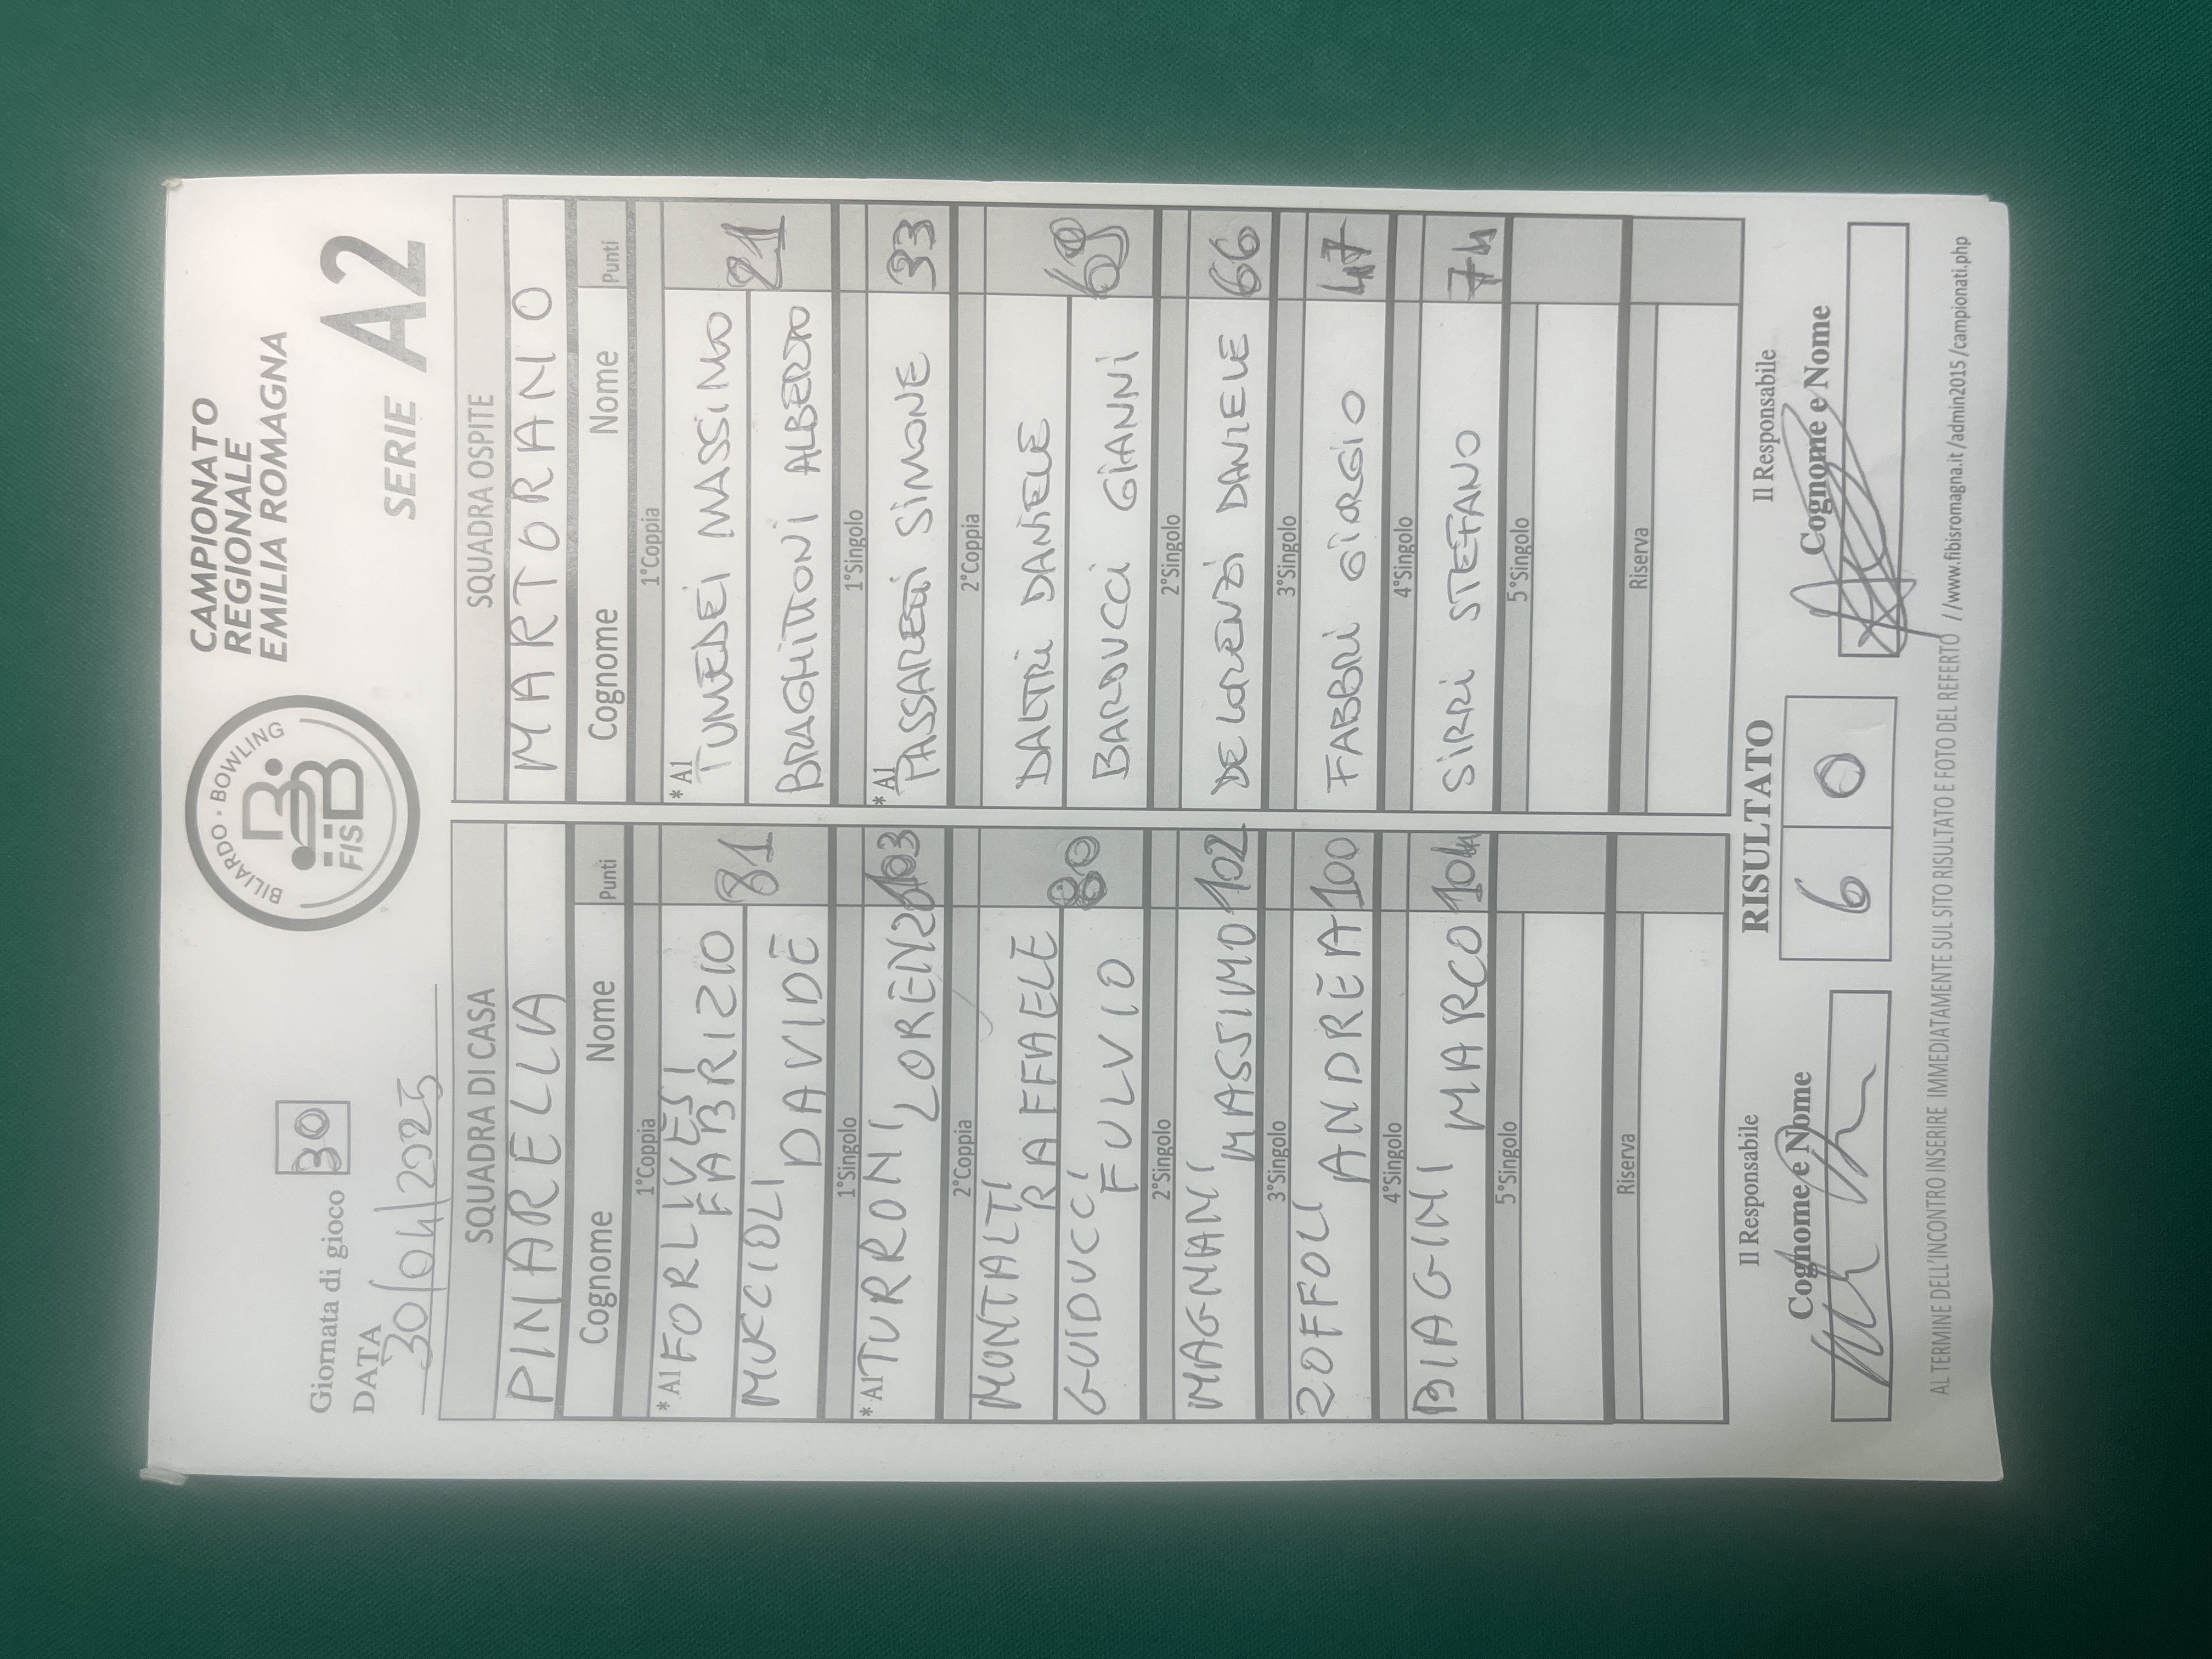 BILIARDO · BOWLING
FISBB
CAMPIONATO
REGIONALE
EMILIA ROMAGNA
Giornata di gioco 30
DATA
30/04/2025
SERIE A2
SQUADRA DI CASA
PINARELLA
Cognome Nome Punti
1°Coppia
* A1 FORLIVESI FABRIZIO
MUCCIOLI DAVIDE 81
1°Singolo
* A1 TURRONI LORENZO 103
2°Coppia
MONTALTI RAFFAELE
GUIDUCCI FULVIO 80
2°Singolo
MAGNANI MASSIMO 102
3°Singolo
ZOFFOLI ANDREA 100
4°Singolo
BIAGINI MARCO 104
5°Singolo
Riserva
SQUADRA OSPITE
MARTORANO
Cognome Nome Punti
1°Coppia
* A1 TUMEDEI MASSIMO
BRAGHITTONI ALBERTO 21
1°Singolo
* A1 PASSARETTI SIMONE 33
2°Coppia
DALTRI DANIELE
BARDUCCI GIANNI
2°Singolo
DE LORENZI DANIELE 66
3°Singolo
FABBRI GIORGIO 47
4°Singolo
SIRRI STEFANO 74
5°Singolo
Riserva
Il Responsabile
Cognome e Nome
RISULTATO
6 0
Il Responsabile
Cognome e Nome
AL TERMINE DELL'INCONTRO INSERIRE IMMEDIATAMENTE SUL SITO RISULTATO E FOTO DEL REFERTO //www.fibisromagna.it /admin2015 /campionati.php